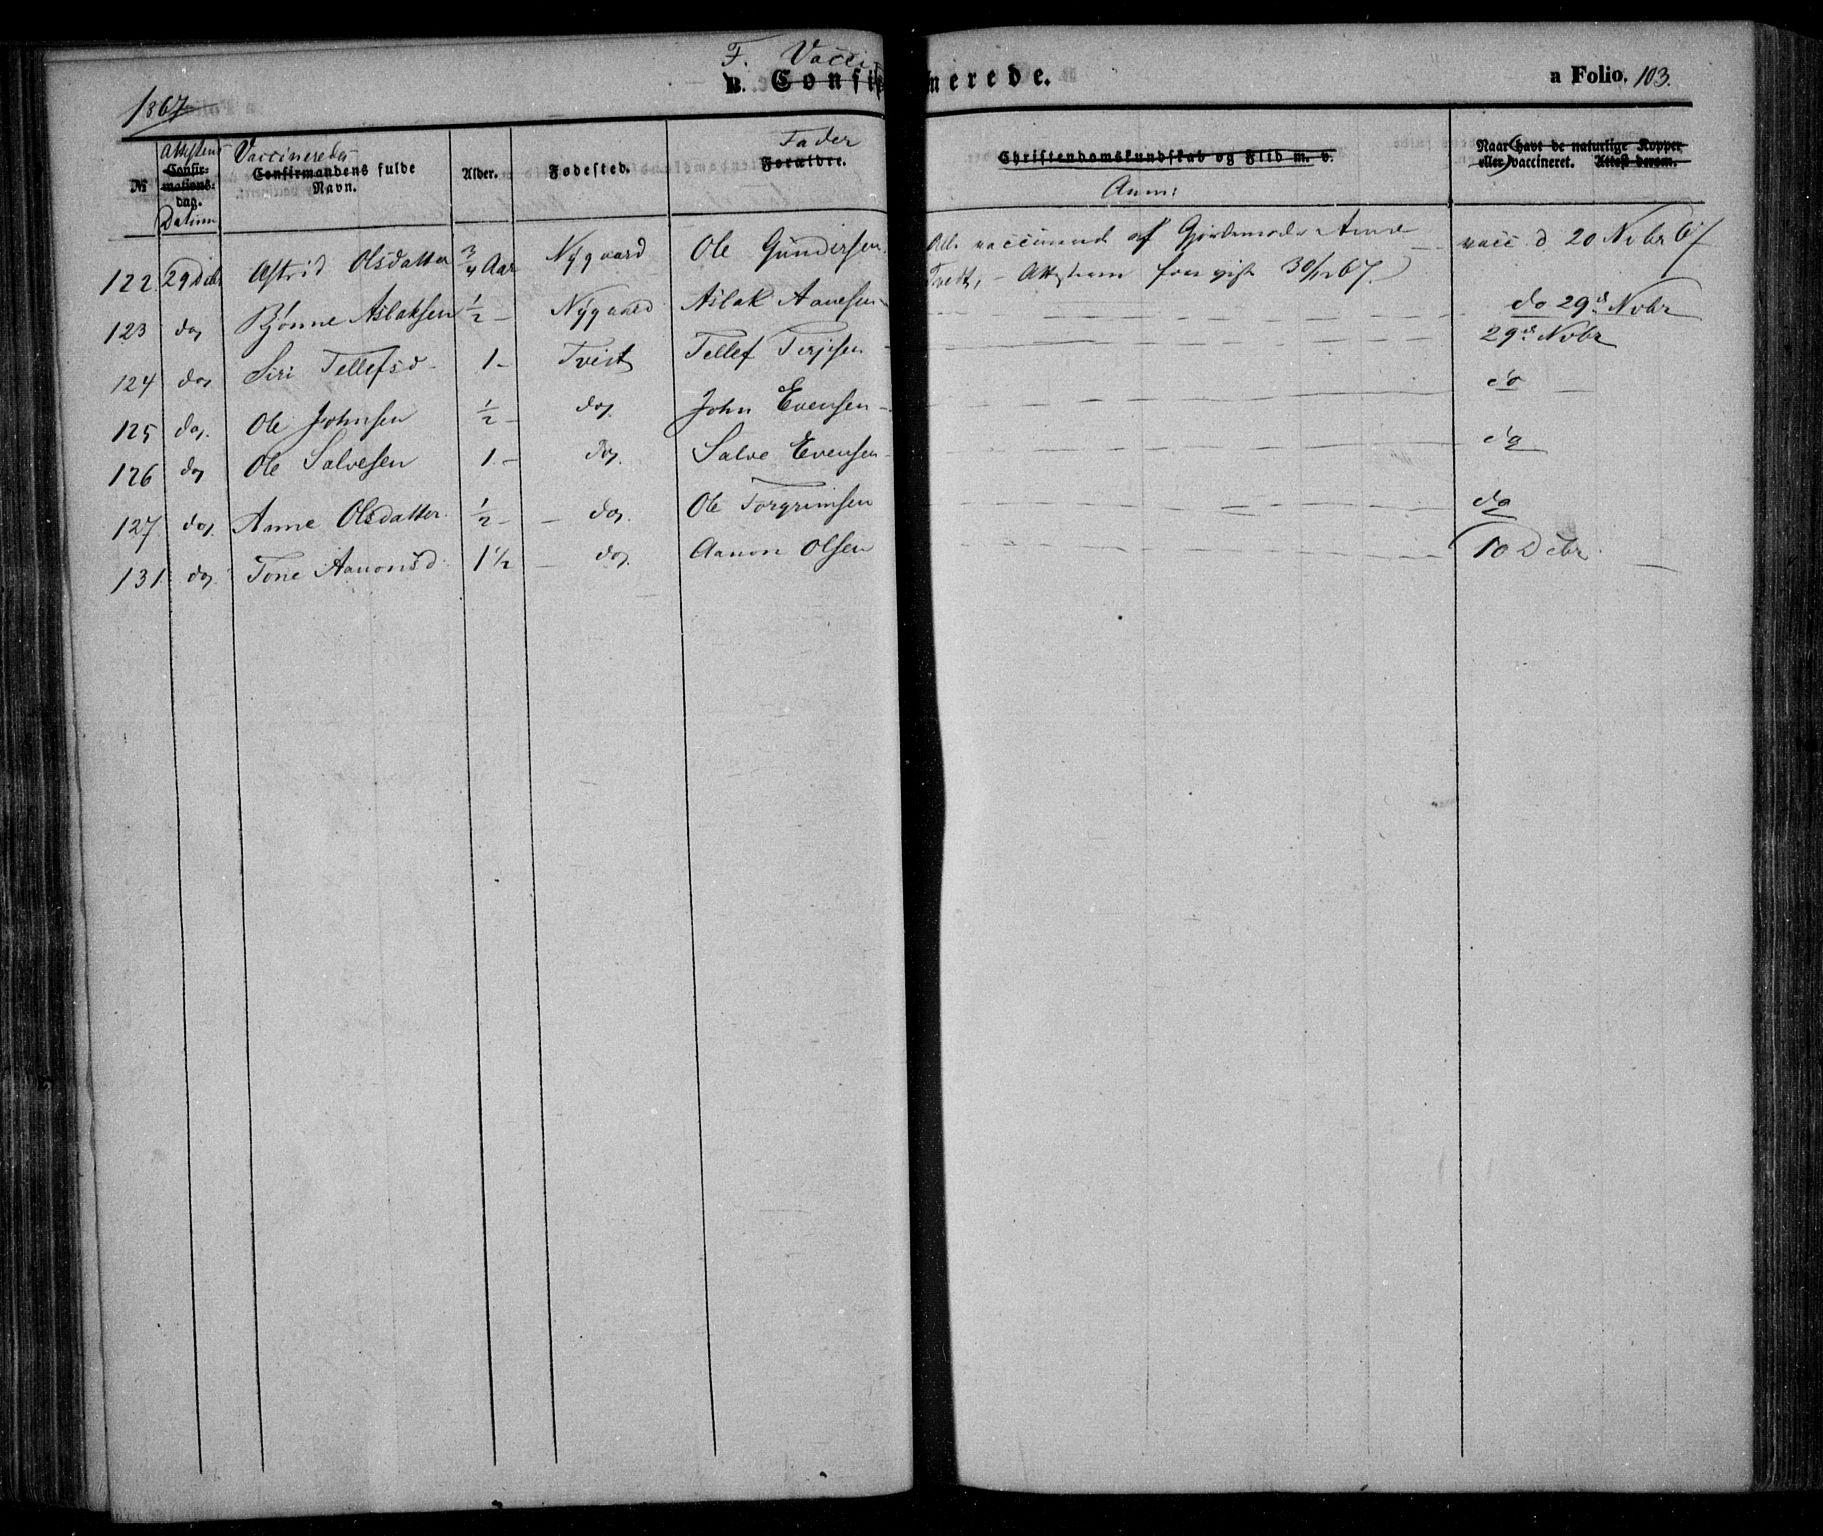 F. Vacci
B. Confirmerede. a Folio. 103.
1867
№ Attestens Confirmations-dag. Datum Vaccineredes Confirmandens fulde Navn. Alder. Fødested. Fader Forældre. Christendomskundskab og Flid m. v. Anm: Naar havt de naturlige Kopper eller vaccineret. Attest derom.
122 29 Debr Astrid Olsdatter 3/4 Aar Nygaard Ole Gundersen Alle vaccinerede af Gjordemoder Anne vacc d 20 Nvbr 67
Tveit, - Attesterne forevist 30/12 67.
123 do, Bjønne Aslaksen 1/2 - Nygaard Aslak Aanesen - do 29de Nvbr
124 do, Siri Tellefsd - 1 - Tveit Tellef Terjesen - 29de Nvbr
125 do, Ole Johnsen 1/2 - do, John Evensen - do
126 do, Ole Salvesen 1 - do, Salve Evensen - do
127 do, Anne Olsdatter 1/2 - do, Ole Torgrimsen do
131 do, Tone Aanonsd 1 1/2 - do, Aanon Olsen 10 Debr